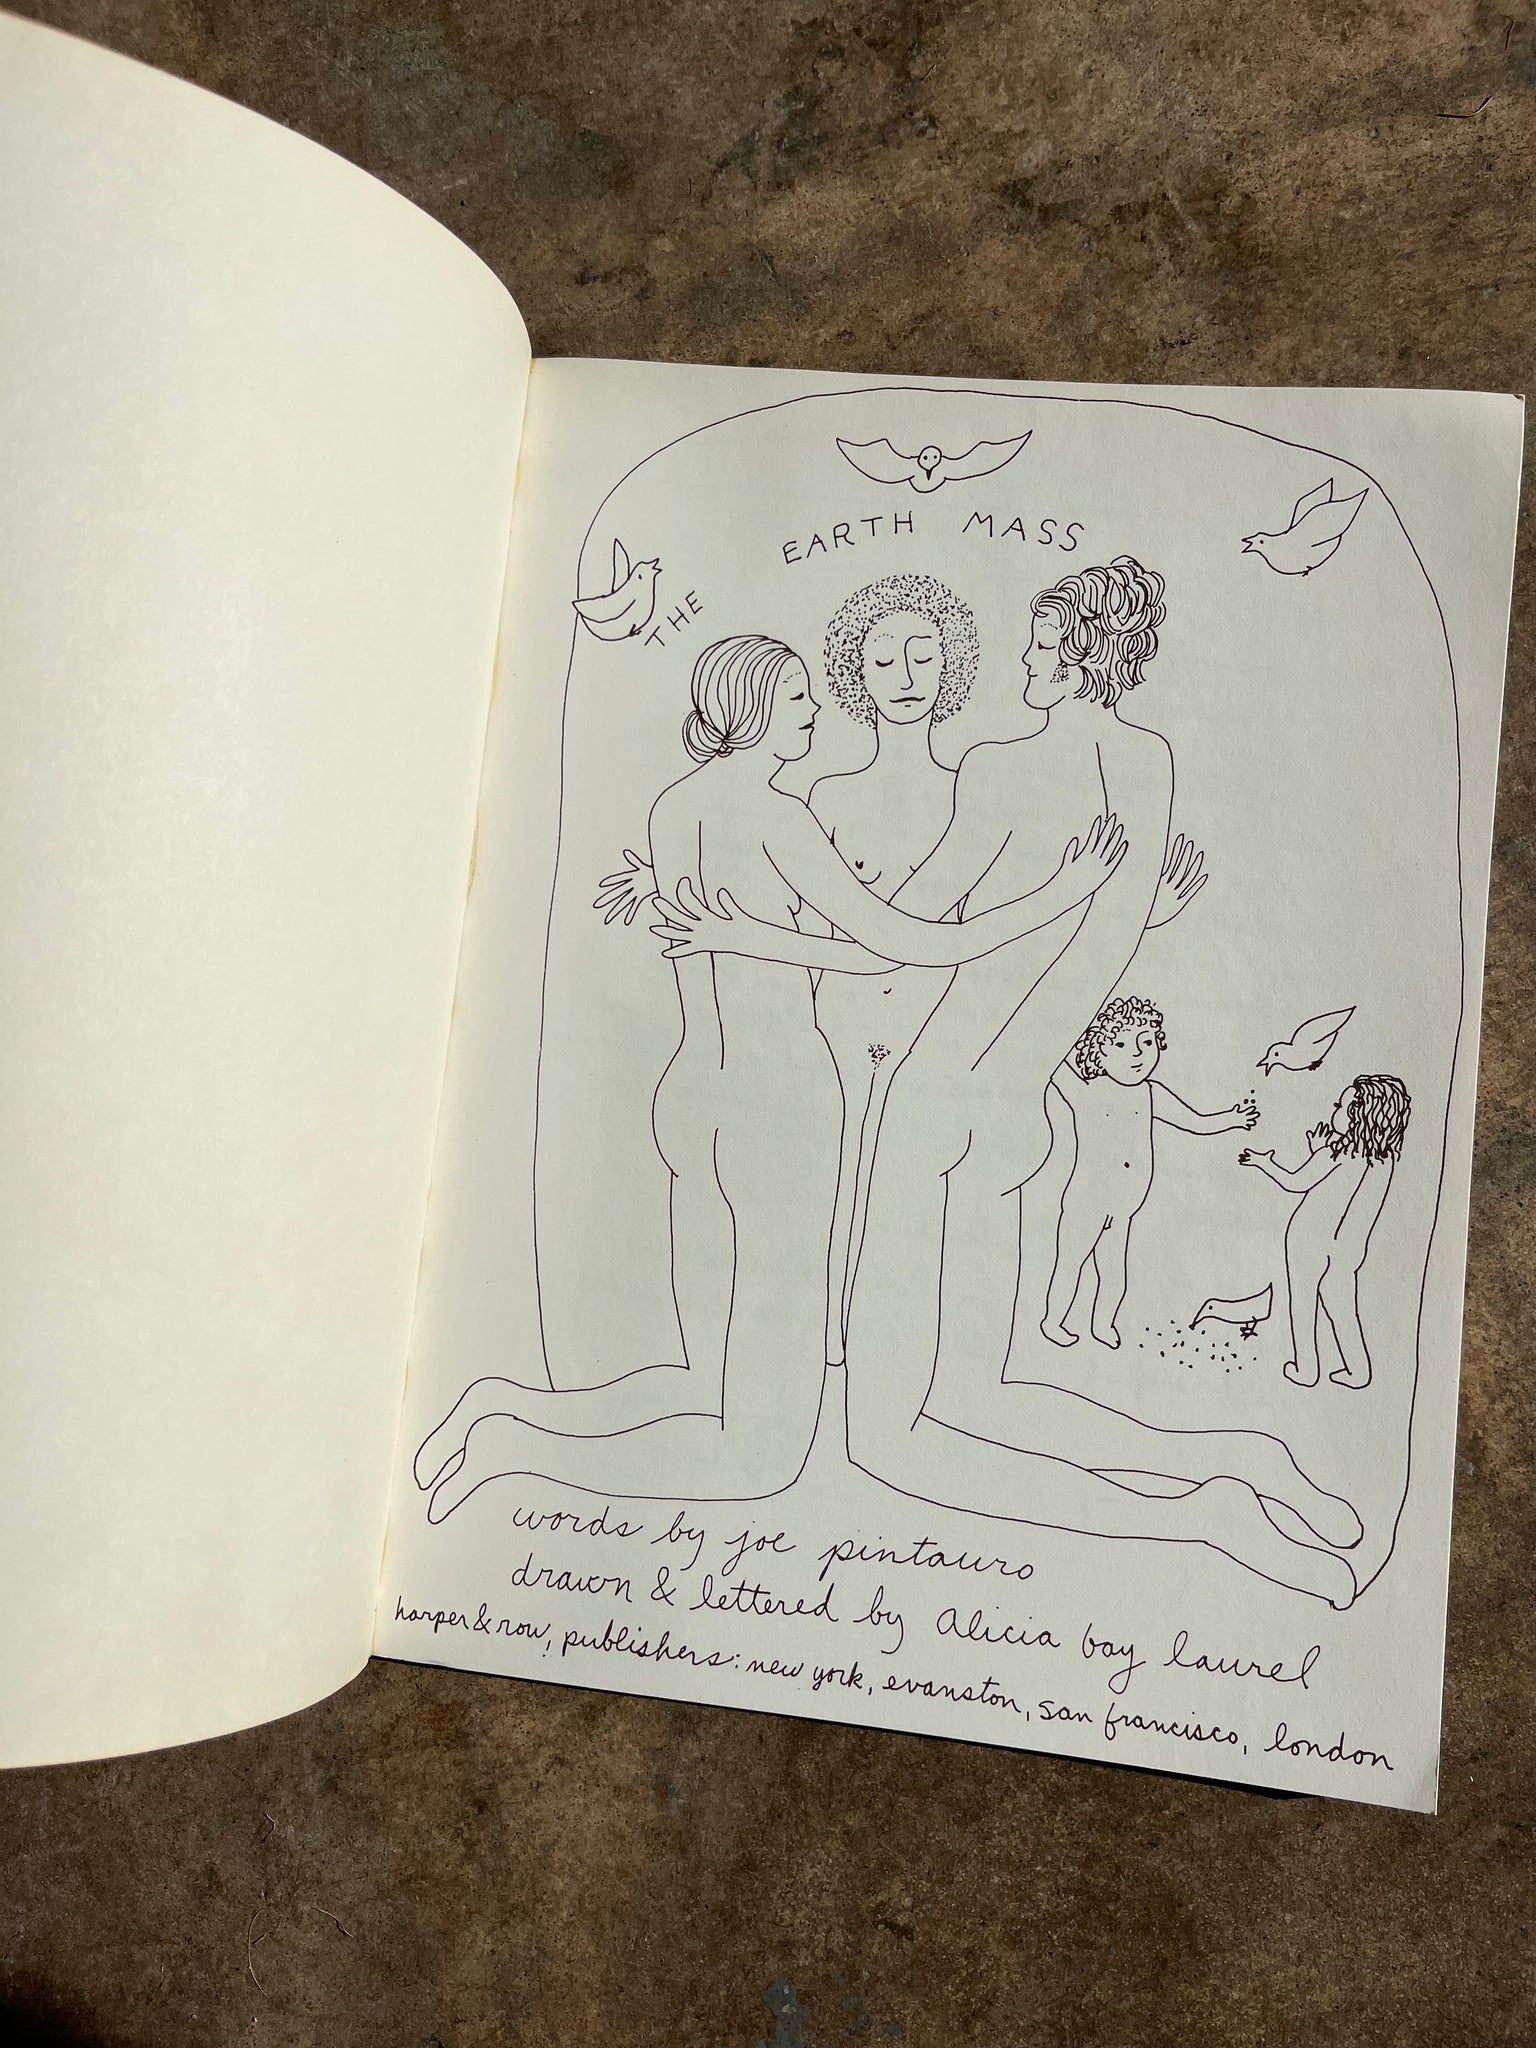 THE EARTH MASS
words by joe pintauro
drawn & lettered by alicia bay laurel
harper & row, publishers: new york, evanston, san francisco, london